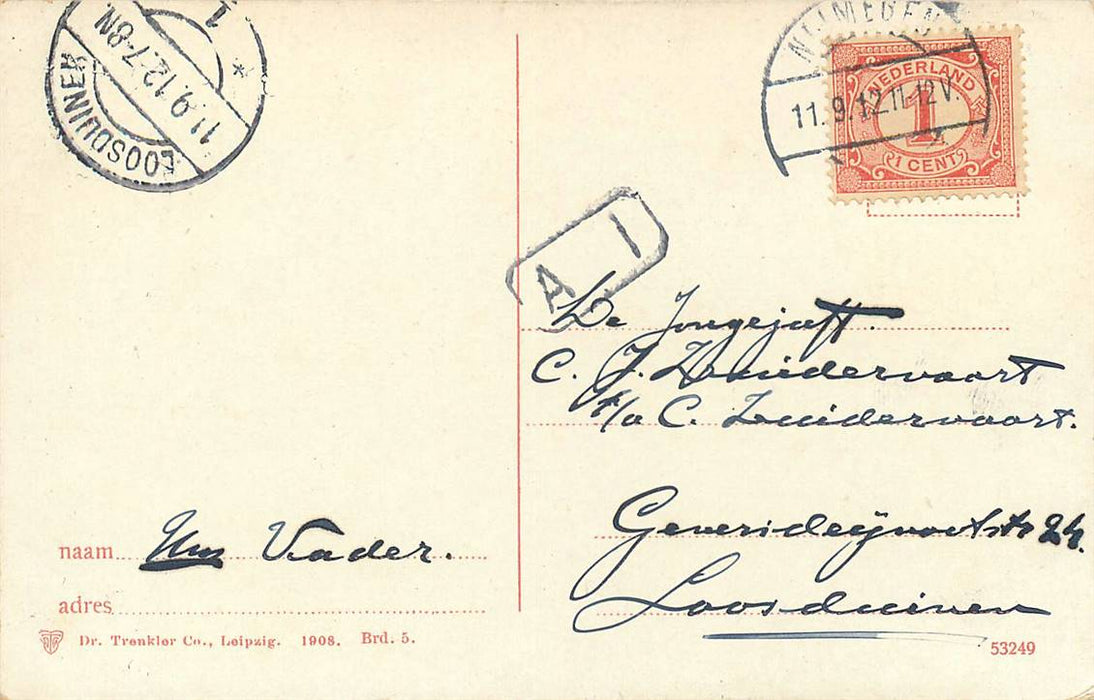 LOOSDUINEN
11.9.12.7-8N
1
*
NIJMEGEN
11.9.12.11-12V.
NEDERLAND
1
1 CENT
A 1
De Jongejuff.
C. J. Zuidervaort
p/a C. Zuidervaort.
24.
Loosduinen
naam Uw Vader.
adres
Dr. Trenkler Co., Leipzig. 1908. Brd. 5.
53249